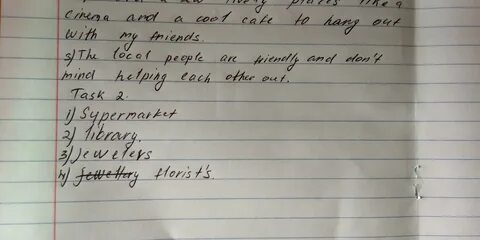 lively places like a
cinema and a cool cafe to hang out
with my friends.
5) The local people are friendly and don't
mind helping each other out.
Task 2.
1) Sypermarket
2) library.
3) Jewelers
4) jewellery florist's.